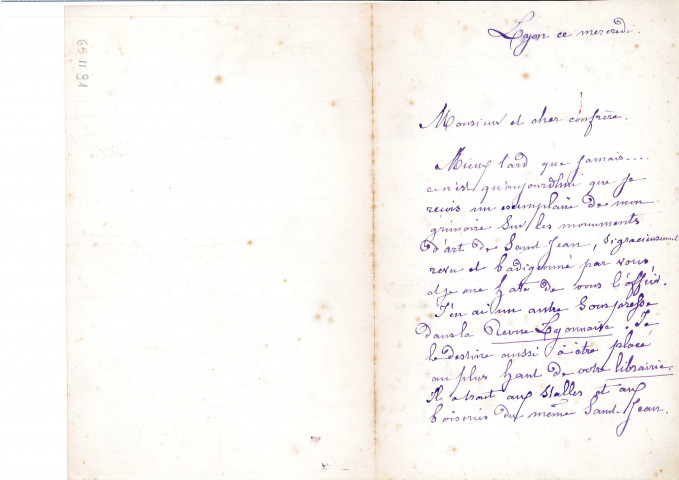 Lyon ce mercredi.
Monsieur et cher confrère.
Mieux tard que jamais....
ce n'est qu'aujourdhui que je
reçois un exemplaire de mon
grimoire sur les monuments
d'art de Saint Jean, si gracieusement
revu et badigeonné par vous
et je me hate de vous l'offrir.
J'en ai un autre sous presse
dans la Revue Lyonnaise. Je
le destine aussi à être placé
au plus haut de votre librairie.
Il a trait aux stalles et aux
boiseries du même Saint Jean.
66 11 91